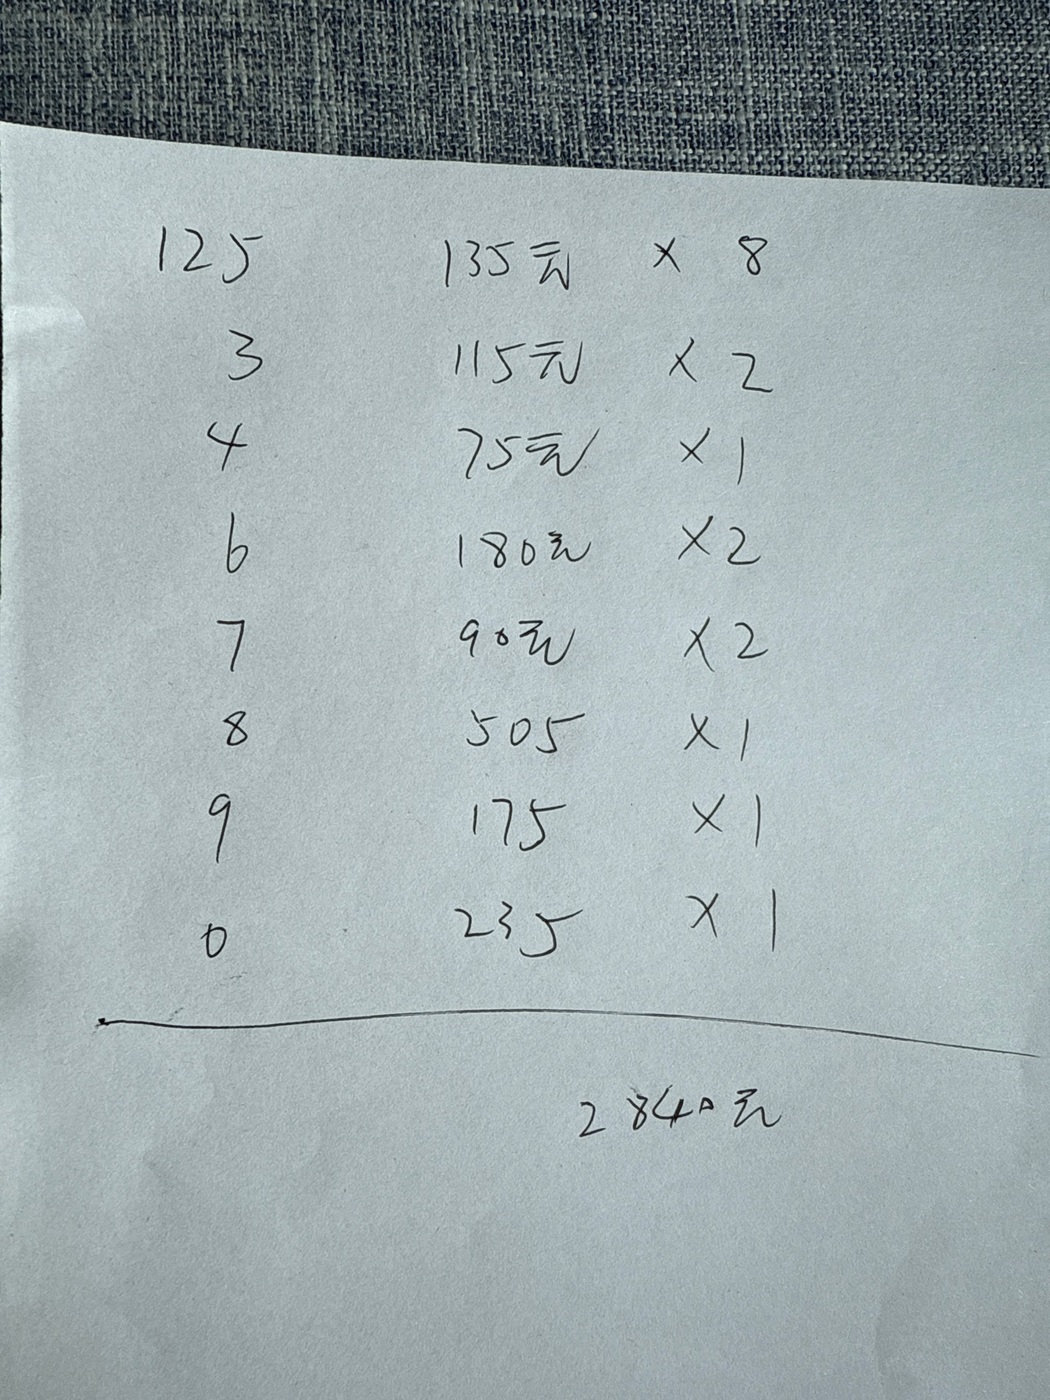 125 135元 × 8
3 115元 × 2
4 75元 × 1
6 180元 × 2
7 90元 × 2
8 505 × 1
9 175 × 1
0 235 × 1
2840元